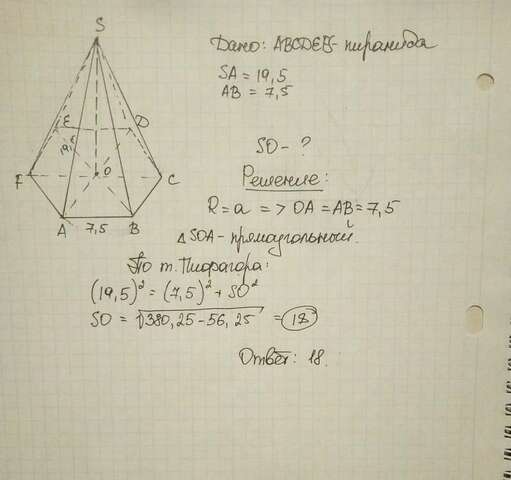 S
Дано: ABCDEFS - пирамида
SA = 19,5
AB = 7,5
E D
19,5
SO - ?
F O C
Решение:
R = a => OA = AB = 7,5
A 7,5 B
△ SOA - прямоугольный.
По т. Пифагора:
(19,5)² = (7,5)² + SO²
SO = √380,25 - 56,25 = 18
Ответ: 18.